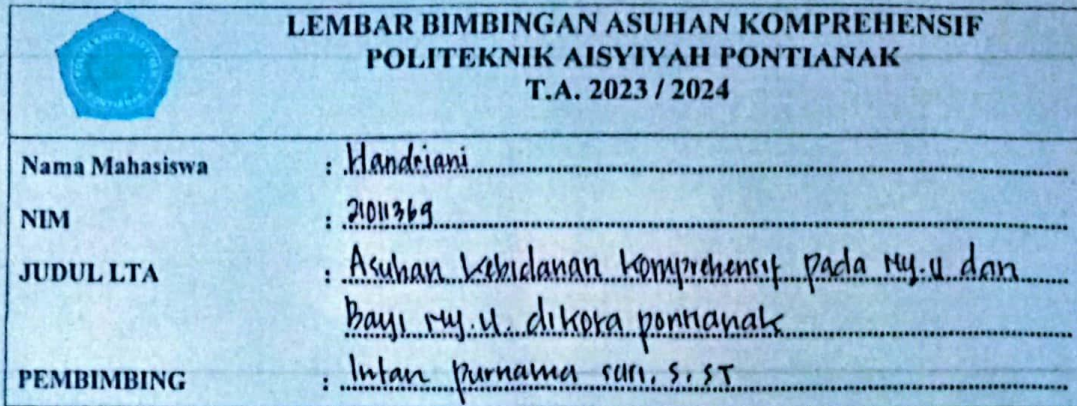 LEMBAR BIMBINGAN ASUHAN KOMPREHENSIF
POLITEKNIK AISYIYAH PONTIANAK
T.A. 2023 / 2024
Nama Mahasiswa : Handriani
NIM : 21011369
JUDUL LTA : Asuhan Kebidanan Komprehensif pada Ny.U dan
Bayi Ny.U. dikota pontianak
PEMBIMBING : Intan purnama sari, S.ST